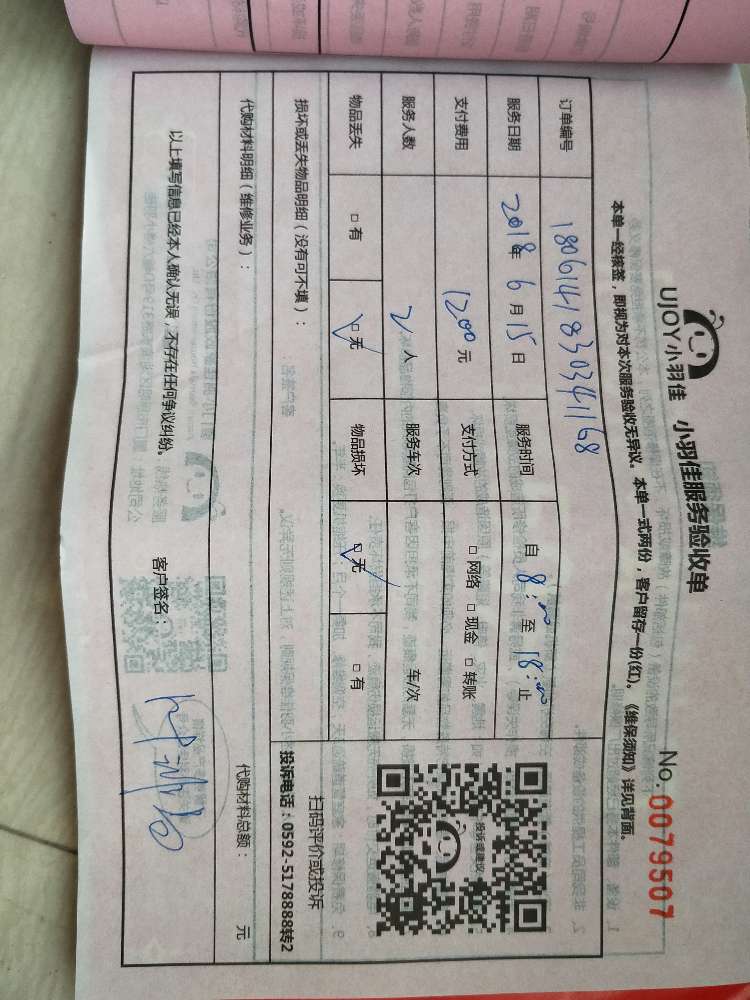 UJOY小羽佳 小羽佳服务验收单
No.0079507
本单一经核签，即视为对本次服务验收无异议。本单一式两份，客户留存一份(红)。《维保须知》详见背面。
订单编号 1806141830341168
服务日期 2018年 6 月 15 日 服务时间 自 8:00 至 18:00 止
支付费用 1200 元 支付方式 □ 网络 □ 现金 □ 转账
服务人数 2 人 服务车次 车/次
物品丢失 □ 有 □ 无 物品损坏 □ 无 □ 有
投诉或建议
扫码评价或投诉
投诉电话：0592-5178888转2
损坏或丢失物品明细（没有可不填）：
代购材料明细（维修业务）： 代购材料总额： 元
以上填写信息已经本人确认无误，不存在任何争议纠纷。 客户签名：